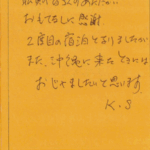 おもてなしに感謝
2度目の宿泊となりましたが
また、沖縄に来たときには
おじゃましたいと思います
K.S